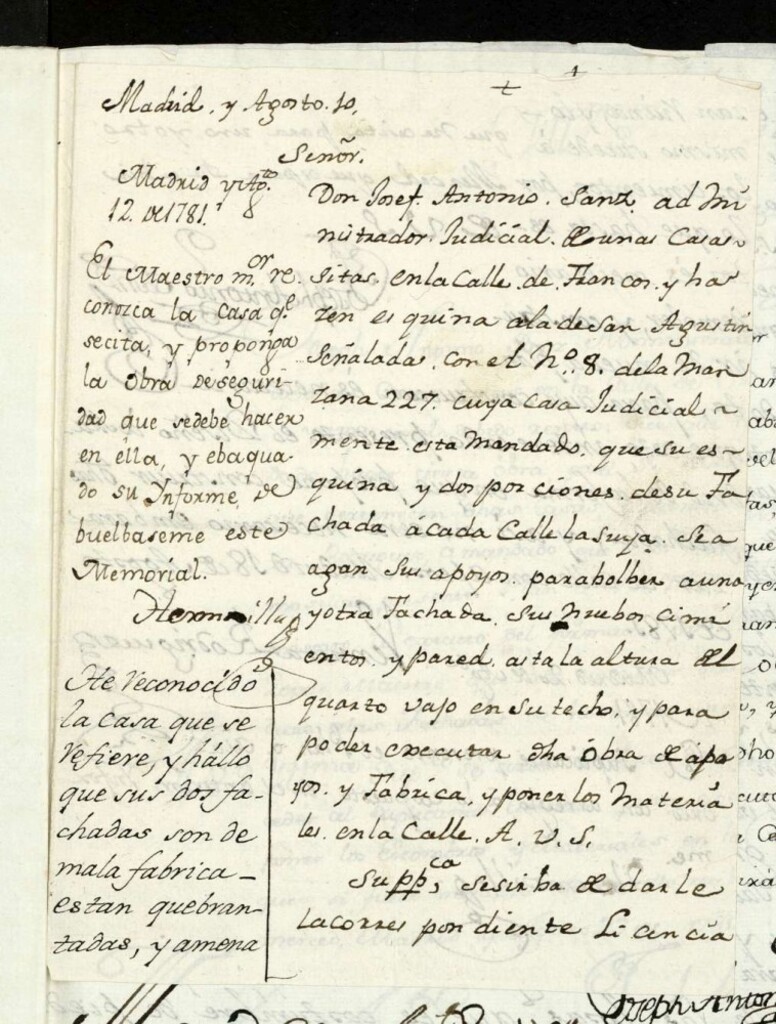 Madrid, y Agosto. 10,
Señor.
Madrid y Agto.
12. de 1781.
El Maestro mor. re
conozca la Casa qe.
se cita, y proponga
la obra de seguri-
dad que se debe hacer
en ella, y ebaqua-
do su Ynforme, De
buelbaseme este
Memorial.
Hermosilla
He reconocido
la casa que se
refiere, y hállo
que sus dos fa-
chadas son de
mala fabrica_
estan quebran-
tadas, y amena
Don Josef. Antonio. Sanz. ad mi
nistrador. Judicial. de unas Casas
sitas. en la Calle. de Francos. y ha
zen esquina ala de San Agustin
Señalada. con el No. 8. de la Man
zana 227. cuya Casa Judicial
mente esta Mandado, que su es
quina y dos porciones. de su Fa
chada ácada Calle la suya. Se a
agan sus apoyos. para bolber a una
y otra Fachada. sus nuebos Cimi
entos. y pared. asta la altura del
quarto vajo en su techo, y para
poder executar dha óbra de ápo
yos. y Fabrica, y poner los Materia
les. en la Calle. A. V. S.
Suppca, se sirba de darle
la corres pon diente Licencia
Joseph Anton